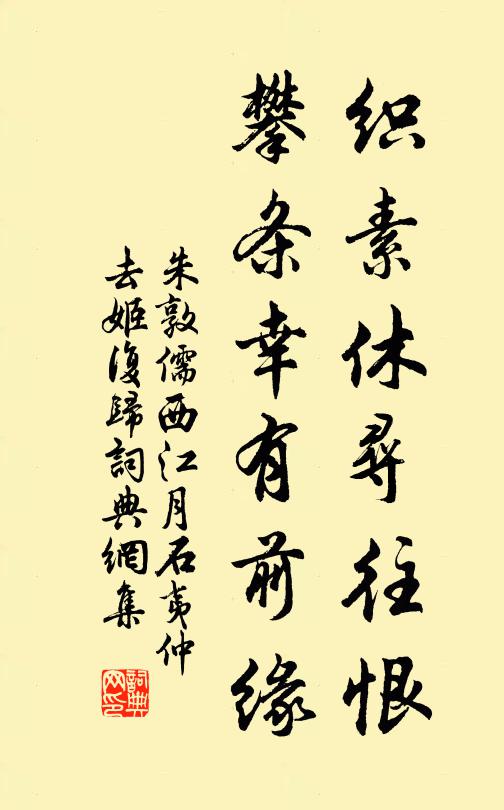 织素休尋往恨
攀条幸有前缘
朱敦儒西江月石夷仲
去姬復歸詞典網集
詞典网印